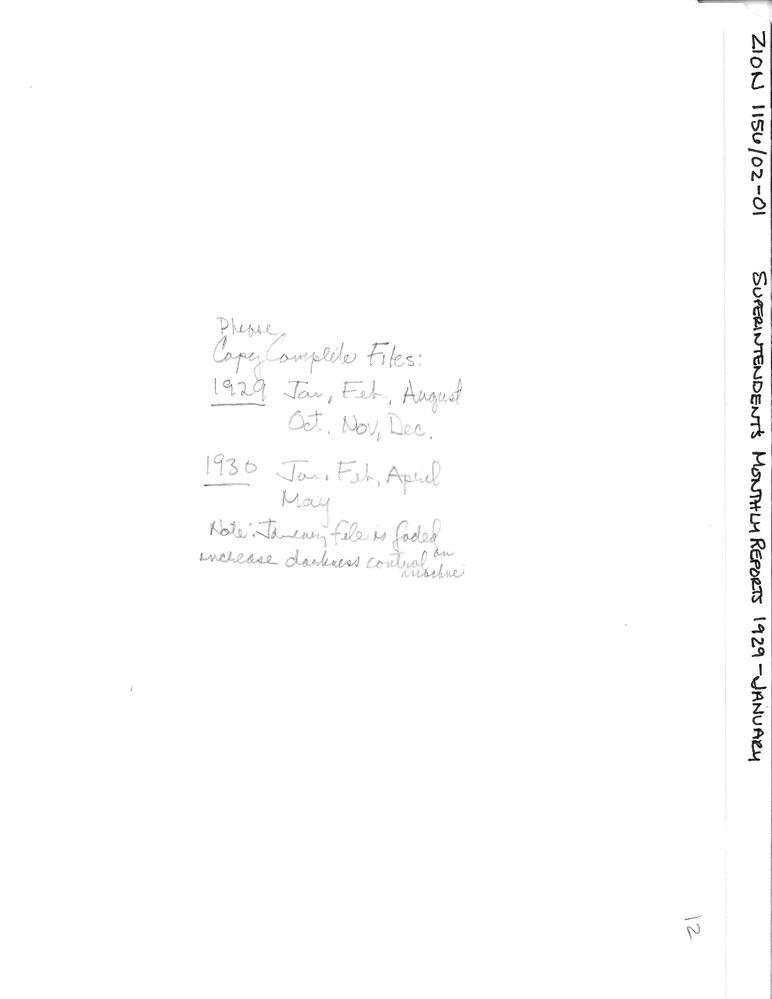 Please
Copy Complete Files:
1929 Jan, Feb, August
Oct. Nov, Dec.
1930 Jan. Feb, April
May
Note: January file is faded
increase darkness control on
machine
ZION 1156/02-01 SUPERINTENDENT'S MONTHLY REPORTS 1929 - JANUARY
12